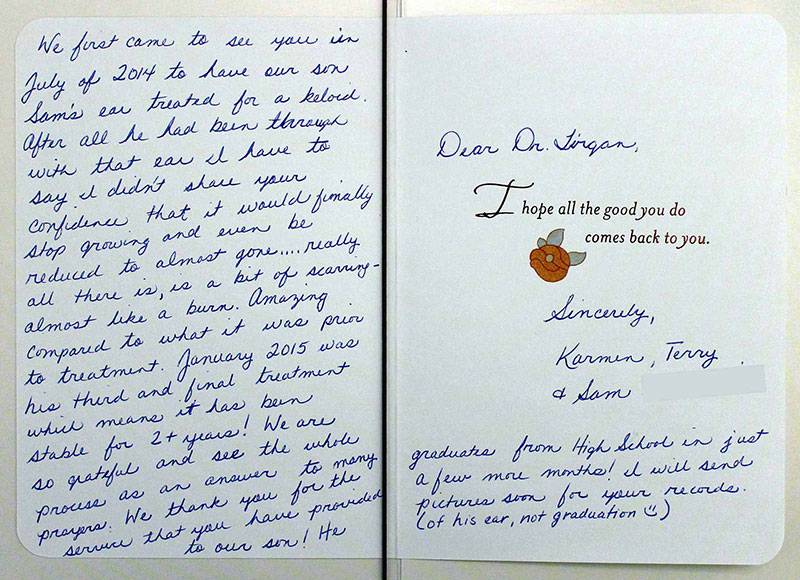 We first came to see you in
July of 2014 to have our son
Sam's ear treated for a keloid.
After all he had been through
with that ear I have to
say I didn't share your
confidence that it would finally
stop growing and even be
reduced to almost gone....really
all there is, is a bit of scarring-
almost like a burn. Amazing
compared to what it was prior
to treatment. January 2015 was
his third and final treatment
which means it has been
stable for 2+ years! We are
so grateful and see the whole
process as an answer to many
prayers. We thank you for the
service that you have provided
to our son! He
Dear Dr. Tirgan,
I hope all the good you do
comes back to you.
Sincerely,
Karmen, Terry
& Sam
graduates from High School in just
a few more months! I will send
pictures soon for your records.
(of his ear, not graduation ☺)